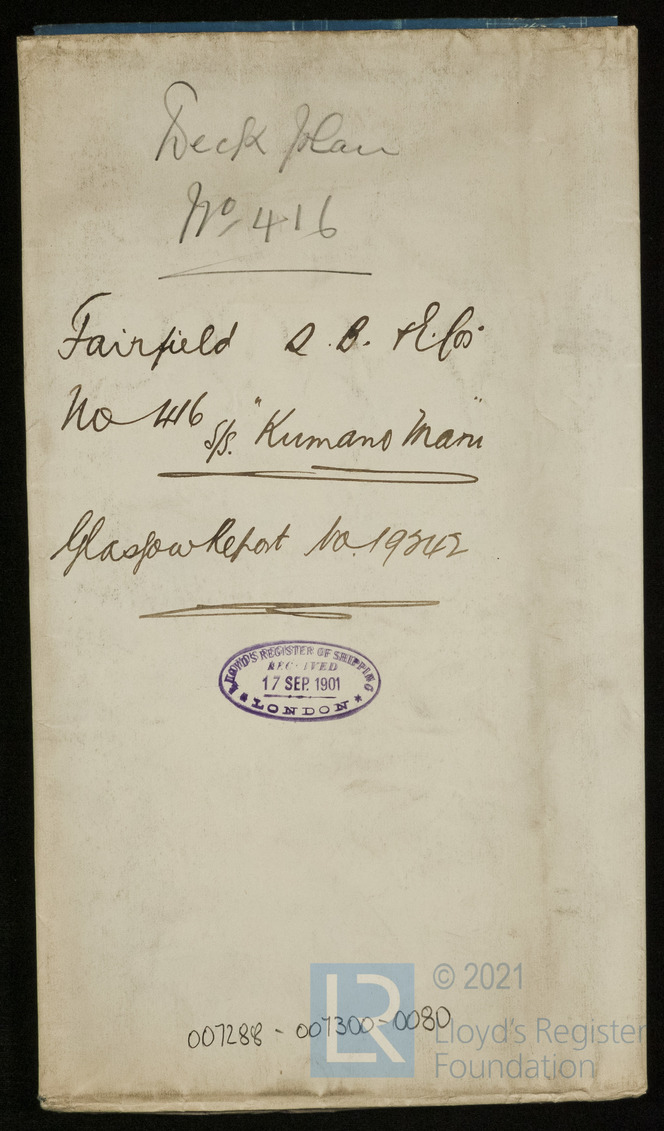 Deck Plan
No 416
Fairfield S. B. & E. Cos
No 416 s/s. "Kumano Maru"
Glasgow Report No. 19242
LLOYD'S REGISTER OF SHIPPING
RECEIVED
17 SEP. 1901
* LONDON *
LR
© 2021
Lloyd's Register
Foundation
007288 - 007300-0080